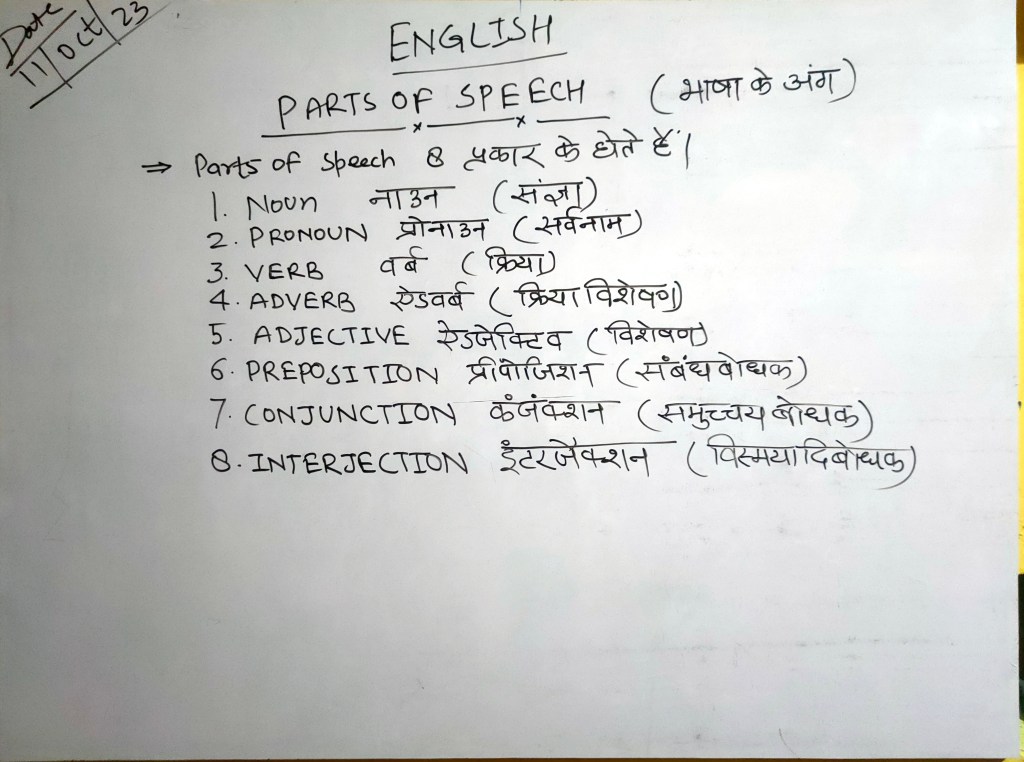 Date
11/Oct/23
ENGLISH
PARTS OF SPEECH (भाषा के अंग)
⇒ Parts of speech 8 प्रकार के होते हैं।
1. Noun नाउन (संज्ञा)
2. PRONOUN प्रोनाउन (सर्वनाम)
3. VERB वर्ब (क्रिया)
4. ADVERB ऐडवर्ब (क्रिया विशेषण)
5. ADJECTIVE ऐडजेक्टिव (विशेषण)
6. PREPOSITION प्रीपोजिशन (संबंध बोधक)
7. CONJUNCTION कंजंक्शन (समुच्चय बोधक)
8. INTERJECTION इंटरजैक्शन (विस्मयादिबोधक)